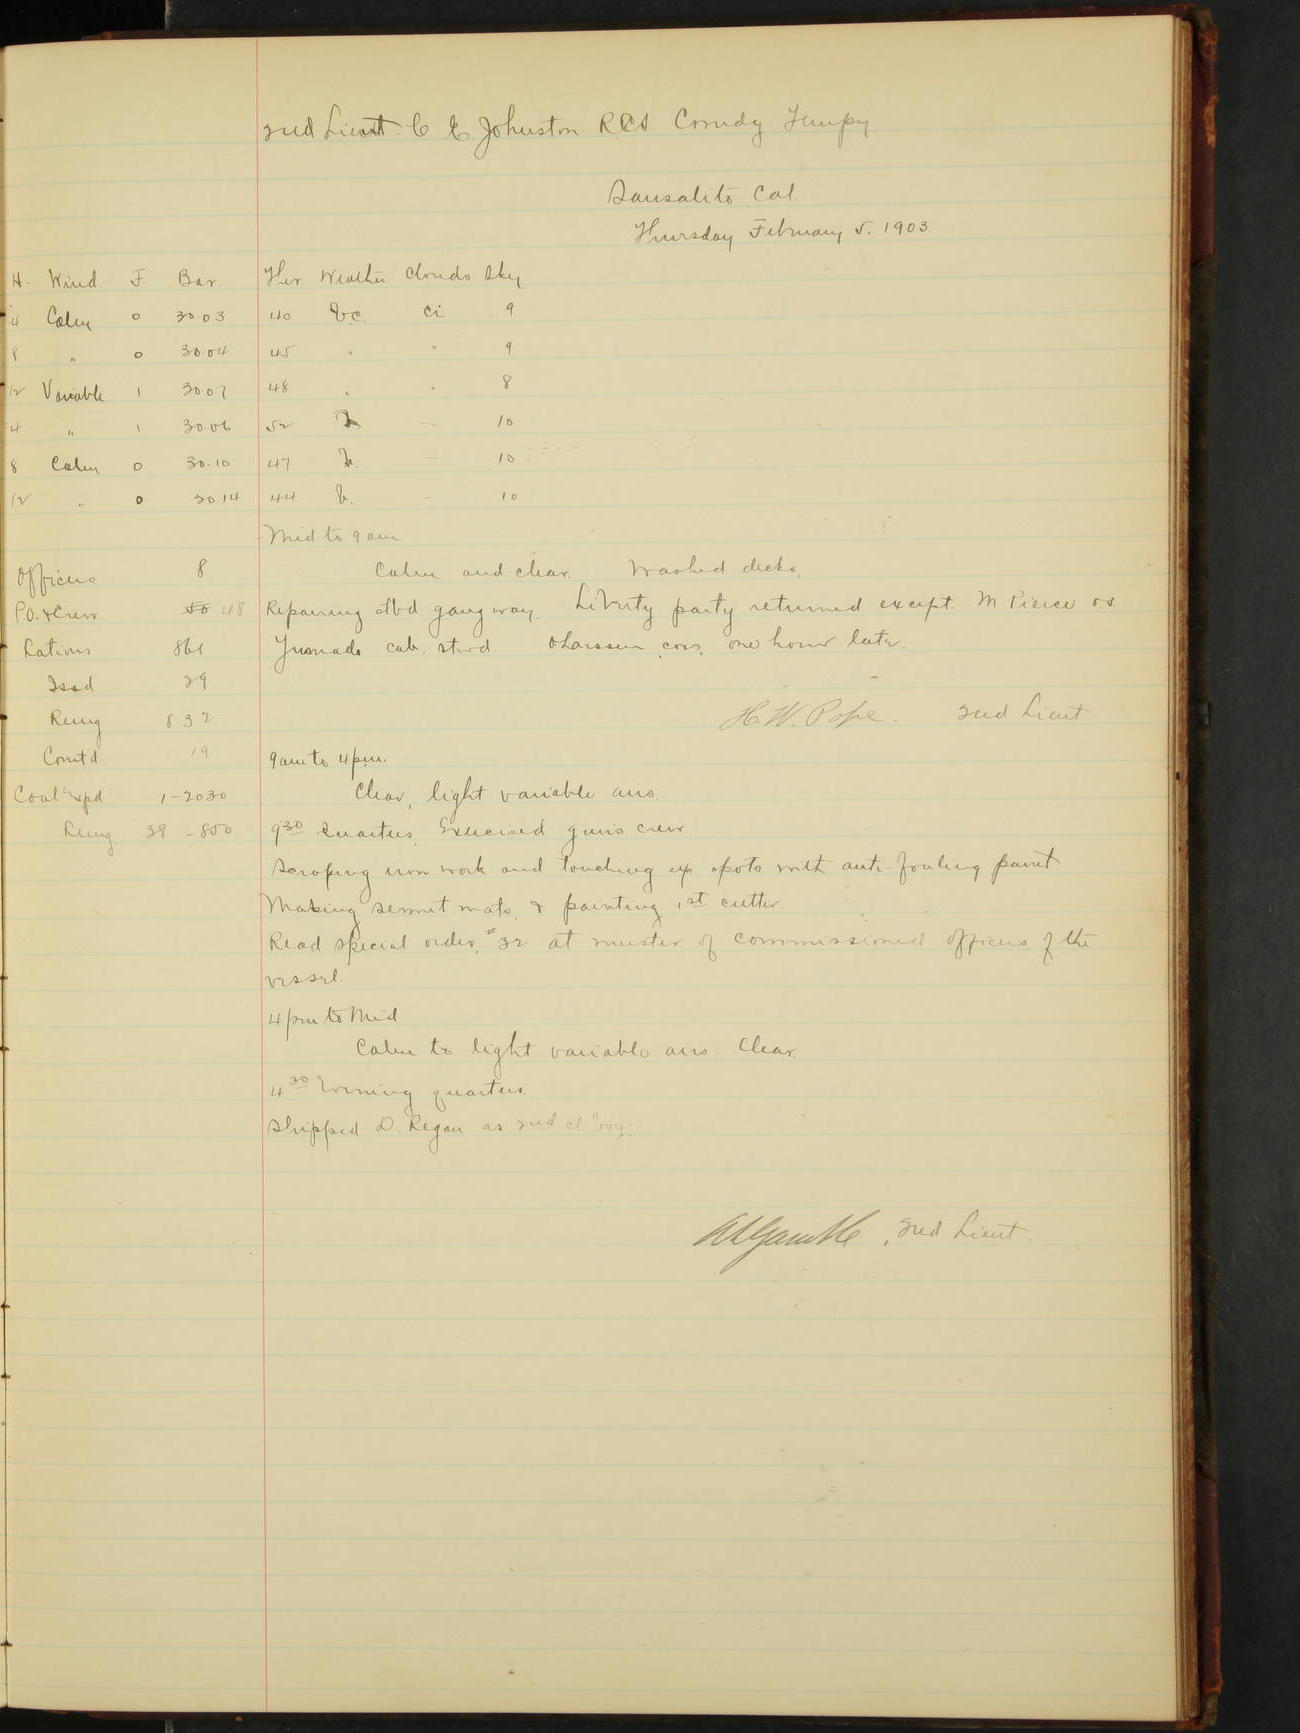 2nd Lieut. C E Johnston RCS Comdg Tempy
Sausalito Cal.
Thursday February 5. 1903
H. Wind F Bar. Ther Weather Clouds Sky
4 Calm 0 30.03 40 b.c. ci 9
8 " 0 30.04 45 " " 9
12 Variable 1 30.07 48 " " 8
4 " 1 30.06 52 b - 10
8 Calm 0 30.10 47 b. - 10
12 " 0 30.14 44 b. - 10
Mid to 9 am
Officers 8 Calm and clear. Washed decks.
P.O. & Crew 50 48 Repairing stbd gangway. Liberty party returned except M. Pierce o.s.
Rations 861 cab. stwd. O Larssen, coxs, one hour late.
Issd 29
Remg 832 H. W. Pope. 2nd Lieut
Comt'd 19 9am to 4pm.
Coal Expd 1-2030 Clear, light variable airs
Remg 38-850 9 30 Quarters. Exercised guns crew
Scraping iron work and touching up spots with anti-fouling paint
Making sennit mats, & painting 1st cutter.
Read special order, #32 at muster of commissioned officers of the
vessel.
4 pm to Mid
Calm to light variable airs. Clear.
4 30 Evening quarters.
Shipped D. Regan as 2nd cl boy.
Gamble, 2nd Lieut.